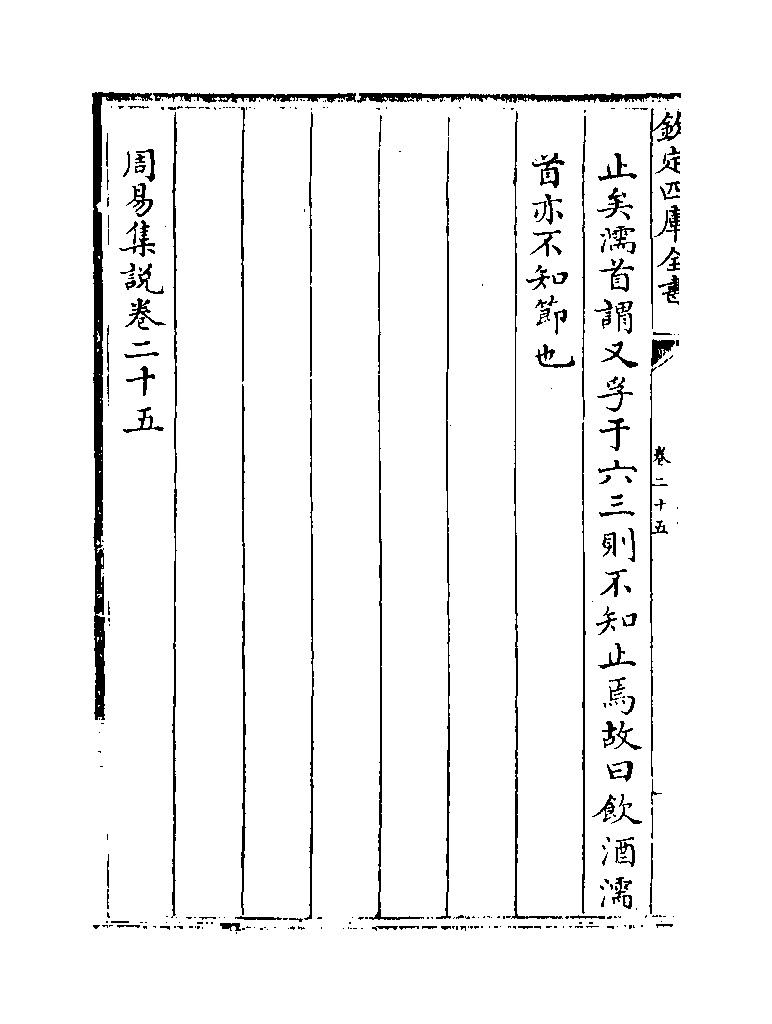 欽定四庫全書
卷二十五
止矣濡首謂又孚于六三則不知止焉故曰飲酒濡
首亦不知節也
周易集説卷二十五